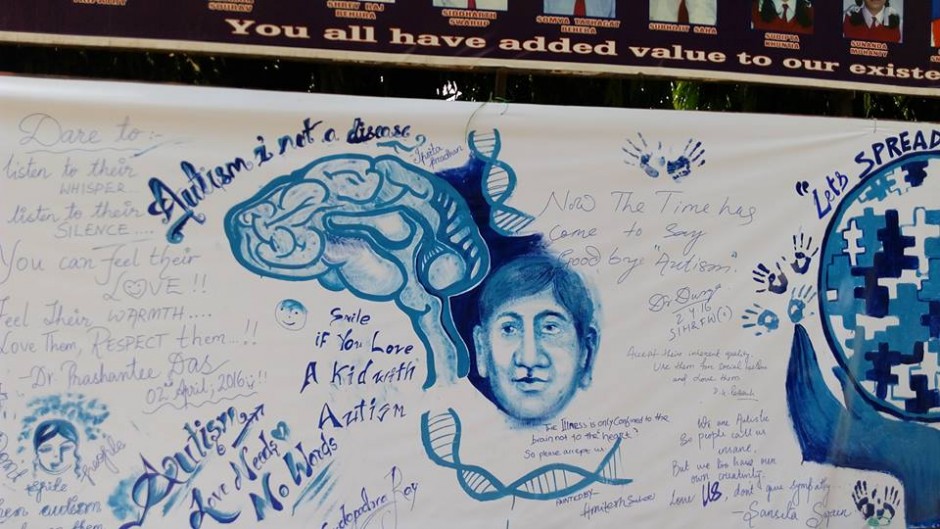 SHREY RAJ
BEHURA
SIDDHARTH
SWARUP
SOMYA TATHAGAT
BEHERA
SUBHAJIT SAHA
SUDIPTA
KHUNTIA
SUNANDA
MOHANTY
You all have added value to our existe
Dare to :-
listen to their
WHISPER
listen to their
SILENCE ....
You can Feel their
LOVE !!
Feel Their WARMTH ....
Love Them, RESPECT them ...!!
- Dr Prashantee Das
02nd April, 2016 !!
Autism is not a disease
Smile
if You Love
A Kid with
Autism
Autism
Love Needs
No Words
Now The Time has
Come to Say
Good bye "Autism".
2 4 16
Accept their inherent quality.
Use them for social
and love them
The Illness is only confined to the
brain not to the heart?
So please accept us
PAINTED BY
We are Autistic
So people call us
insane,
But we too have our
own creativity.
Love US, dont give sympathy
"Lets SPREAD